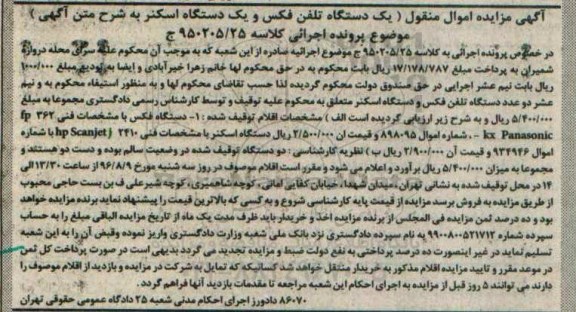 آگهی مزایده اموال منقول ( یک دستگاه تلفن فکس و یک دستگاه اسکنر به شرح متن آگهی )
موضوع پرونده اجرائی کلاسه ۹۵۰۲۰۵/۲۵ ج
در خصوص پرونده اجرائی به کلاسه ۹۵۰۲۰۵/۲۵ ج موضوع اجرائیه صادره از این شعبه که به موجب آن محکوم علیه سرای محله دروازه
شمیران به پرداخت مبلغ ۱۷/۱۷۸/۷۸۷ ریال بابت محکوم به در حق محکوم لها خانم زهرا خیرآبادی و ایضا به تودیع مبلغ ۱۰۰۰/۰۰۰
ریال بابت نیم عشر اجرایی در حق صندوق دولت محکوم گردیده لذا حسب تقاضای محکوم لها و به منظور استیفاء محکوم به و نیم
عشر دو عدد دستگاه تلفن فکس و دستگاه اسکنر متعلق به محکوم علیه توقیف و توسط کارشناس رسمی دادگستری مجموعا به مبلغ
۵/۴۰۰/۰۰۰ ریال و به شرح زیر ارزیابی گردیده است الف ) مشخصات اقلام توقیف شده : ۱- دستگاه فکس با مشخصات فنی fp ۳۶۲
kx Panasonic - . شماره اموال ۸۹۸۰۹۵ و قیمت آن ۲/۵۰۰/۰۰۰ ریال دستگاه اسکنر با مشخصات فنی hp Scanjet j ۲۴۱۰ با شماره
اموال ۹۳۴۹۴۶ و قیمت آن ۲/۹۰۰/۰۰۰ ریال ب ) نظریه کارشناسی : دو دستگاه توقیف شده در وضعیت سالم بوده و دست دو هستند و
مجموعا به میزان ۵/۴۰۰/۰۰۰ ریال برآورد و اعلام می شود و مقرر است اقلام موصوف در روز سه شنبه مورخ ۹۶/۸/۹ از ساعت ۱۳/۳۰ الی
۱۴ در محل توقیف شده به نشانی تهران، میدان شهدا، خیابان کفایی امانی، کوچه شاهمیری، کوچه شیرعلی ف بن بست حاجی محبوب
از طریق مزایده به فروش برسد مزایده از قیمت پایه کارشناسی شروع و به کسی که بالاترین قیمت را پیشنهاد نماید برنده مزایده خواهد
بود و ده درصد ثمن مزایده فی المجلس از برنده مزایده اخذ و خریدار باید ظرف مدت یک ماه از تاریخ مزایده الباقی مبلغ را به حساب
سپرده شماره ۹۹۰۰۸۰۰۵۲۱۷۱۲ به نام سپرده دادگستری نزد بانک ملی شعبه وزارت دادگستری واریز نموده وقبض آن را به این شعبه
تسلیم نماید در غیر اینصورت ده درصد پرداختی به نفع دولت ضبط و مزایده تجدید می گردد بدیهی است در صورت پرداخت کل ثمن
در موعد مقرر و تایید مزایده اقلام مذکور به خریدار منتقل خواهد شد کسانیکه که تمایل به شرکت در مزایده و بازدید از اقلام موصوف را
دارند می توانند ۵ روز قبل از مزایده به اجرای احکام این شعبه مراجعه تا مقدمات بازدید آنها فراهم گردد.
۸۶۰۷۰ دادورز اجرای احکام مدنی شعبه ۲۵ دادگاه عمومی حقوقی تهران